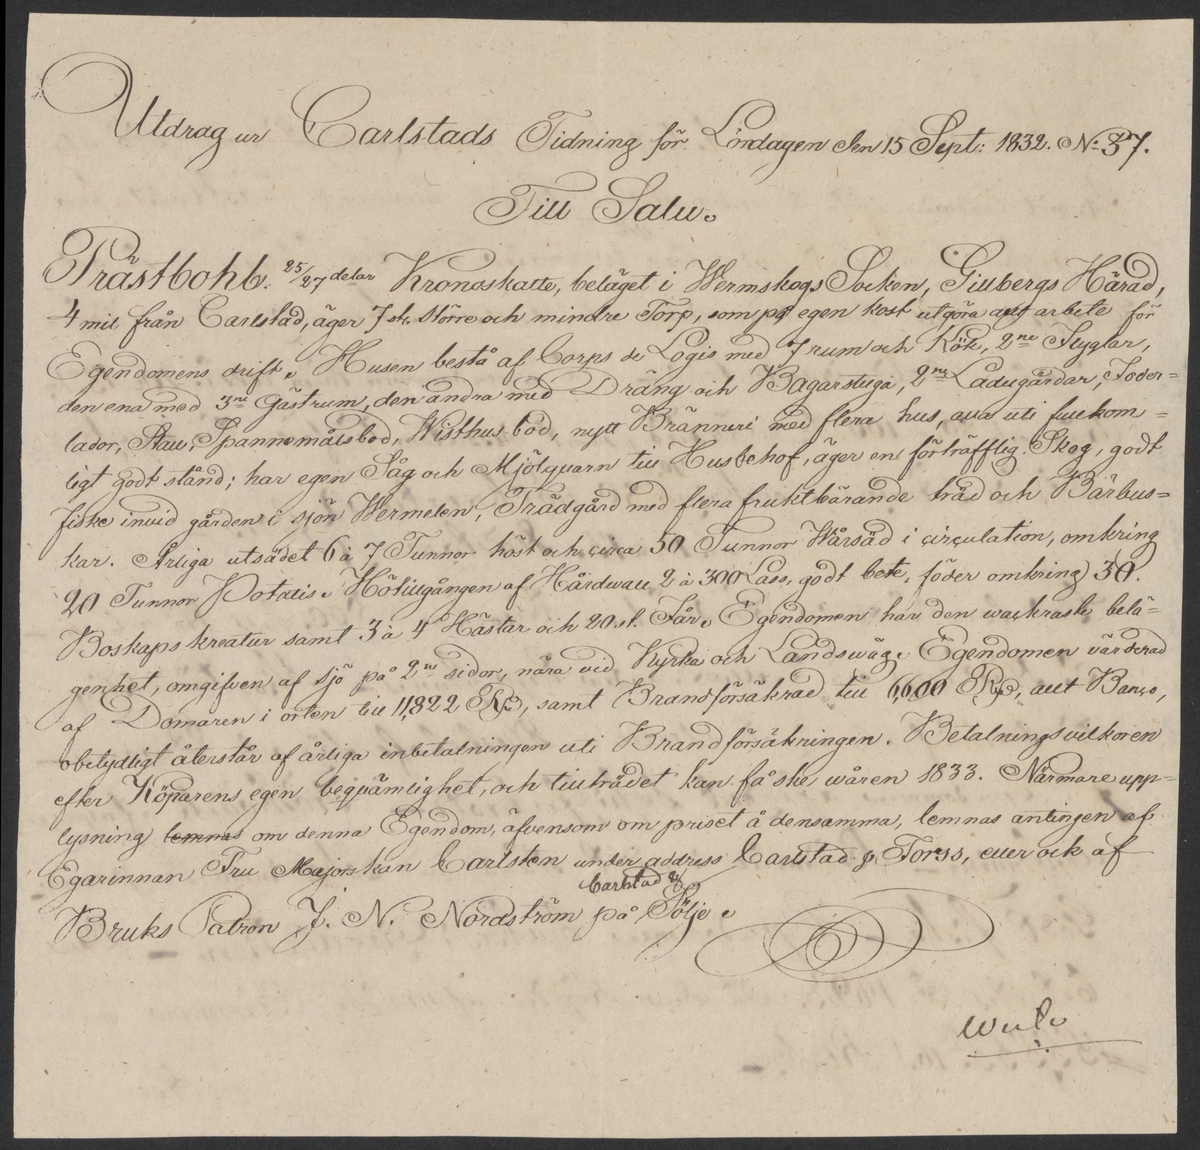 Utdrag ur Carlstads Tidning för Lördagen den 15 Sept: 1832. No 37.
Till Salu.
Prästbohl. 25/27 delar Kronoskatte, beläget i Wermskogs Socken, Gillbergs Härad,
4 mil från Carlstad, äger 7 st. större och mindre Torp, som på egen kost utgöra allt arbete för
Egendomens drift. Husen bestå af Corps de Logis med 7 rum och Kök, 2ne Flyglar,
den ena med 3ne Gästrum, den andra med Dräng och Bagarstuga, 2ne Ladugårdar, Foder=
lador, Stall, Spannemålsbod, Wisthusbod, nytt Bränneri med flera hus, alla uti fullkom=
ligt godt stånd; har egen Såg och Mjölqvarn till Husbehof, äger en förträfflig Skog, godt
fiske invid gården i sjön Wermelen, Trädgård med flera fruktbärande träd och Bärbus=
kar. Årliga utsädet 6 à 7 Tunnor höst och circa 50 Tunnor Wårsäd i circulation, omkring
20 Tunnor Potatis. Hötillgången af Hårdwall 2 à 300 Lass, godt bete, föder omkring 30.
Boskapskreatur samt 3 à 4 Hästar och 20 st. Får. Egendomen har den wackraste belä=
genhet, omgifven af sjö på 2ne sidor, nära vid Kyrka och Landswäg. Egendomen värderad
af Domaren i orten till 11,822 Rd, samt Brandförsäkrad till 6,600 Rd, allt Banco,
obetydligt återstår af årliga inbetalningen uti Brandförsäkringen. Betalningsvilkoren
efter Köparens egen beqvämlighet, och tillträdet kan få ske wåren 1833. Närmare upp=
lysning lemnas om denna Egendom, äfvensom om priset å densamma, lemnas antingen af
Egarinnan Fru Majorskan Carlsten under address Carlstad & Torss, eller ock af
Carlstad &
Bruks Patron J. N. Nordström på Följe.